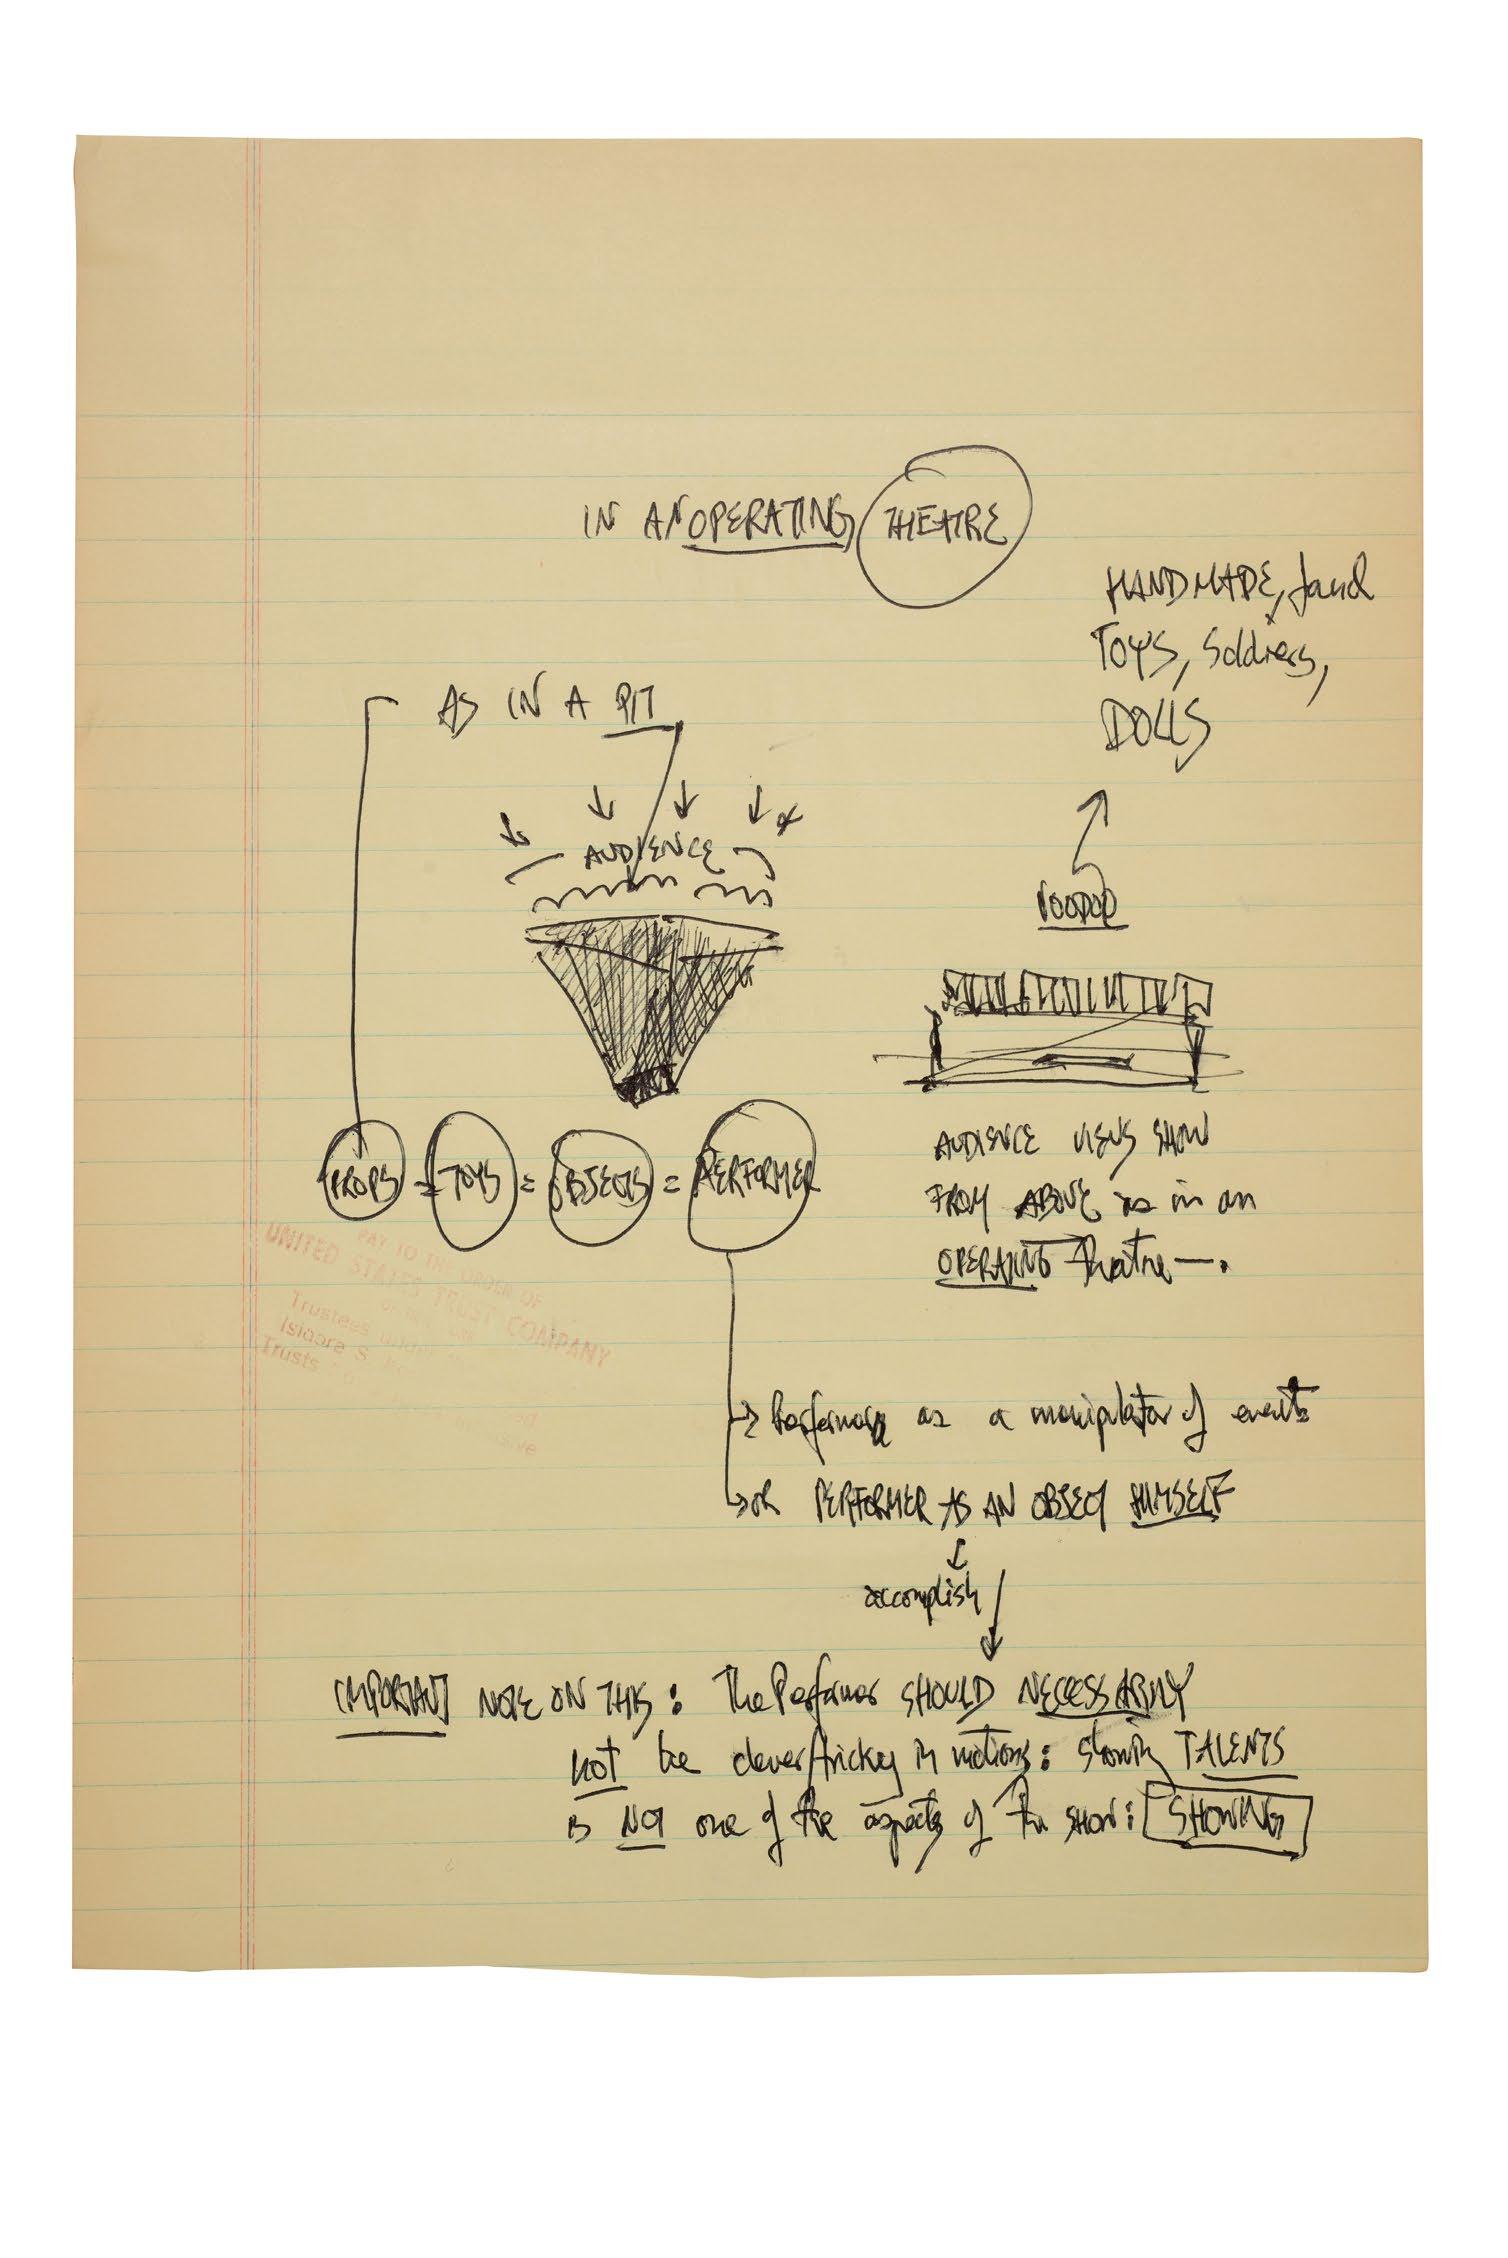 IN AN OPERATING THEATRE
HANDMADE, found
TOYS, Soldiers,
DOLLS
AS IN A PIT
AUDIENCE
VOODOO
PROPS = TOYS = OBJECTS = PERFORMER
AUDIENCE VIEWS SHOW
FROM ABOVE as in an
OPERATING theatre —.
PAY TO THE ORDER OF
UNITED STATES TRUST COMPANY
Trustees under
Isidore S.
Trusts
→ Performer as a manipulator of events
→ or PERFORMER AS AN OBJECT HIMSELF
accomplish
IMPORTANT NOTE ON THIS: The Performer SHOULD NECESSARILY
NOT be clever/tricky in motions: showing TALENTS
is NOT one of the aspects of the show: SHOWING